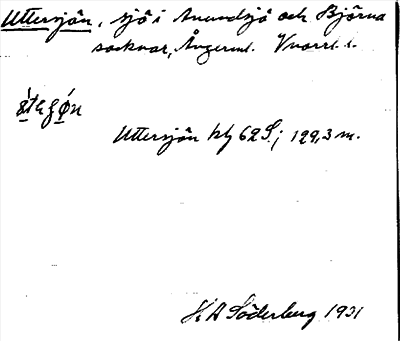 Uttersjön, sjö i Anundsjö och Björna
socknar, Ångerml. Vnorrl. l.
Uttersjön bl. 62 S.; 129,3 m.
H A Söderberg 1931